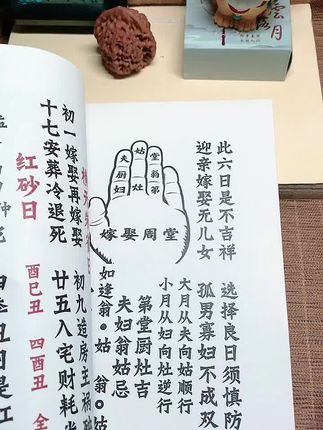 此六日是不吉祥
迎亲嫁娶无儿女
选择良日须慎防
孤男寡妇不成双
大月从夫向姑顺行
小月从妇向灶逆行
第堂厨灶吉
夫妇翁姑忌
如逢翁。姑。
夫 姑 堂
厨 翁
妇 灶 第
嫁娶周堂
初一嫁娶再嫁娶
十七安葬冷退死
初九造房主祸
廿五入宅财耗
红砂日
酉巳丑 四酉丑 全
雲
月